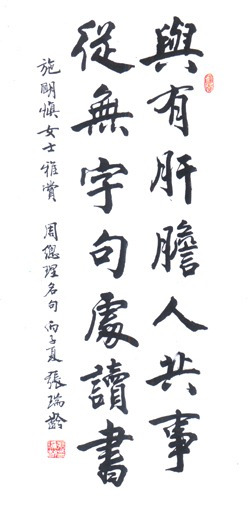 與有肝膽人共事
從無字句處讀書
施明慎女士雅賞 周總理名句 丙子夏 張瑞齡